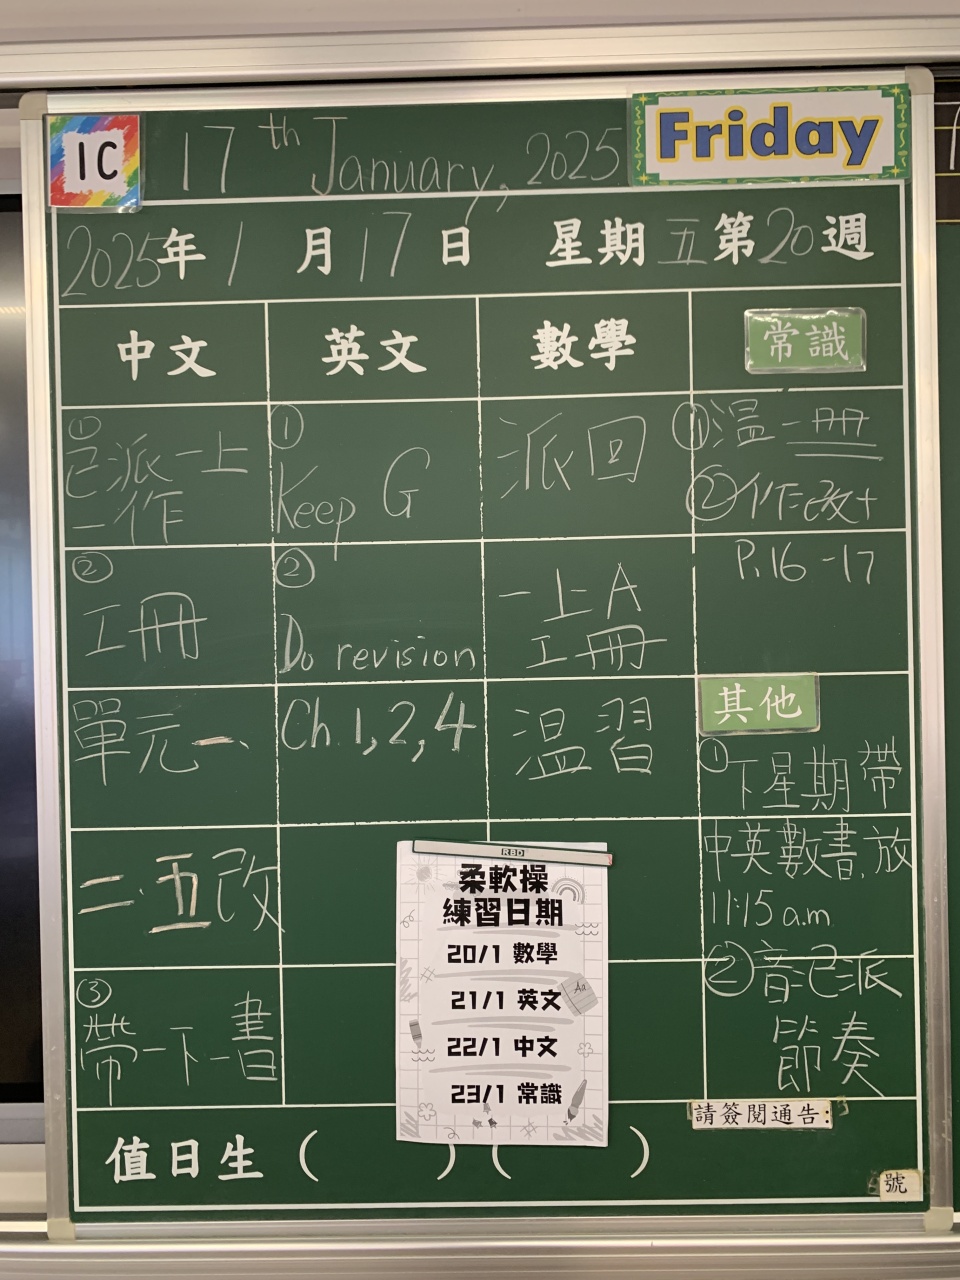 1C
17th January, 2025
Friday
2025年1月17日 星期五第20週
中文
英文
數學
常識
①
已派一上
一作
②
工冊
單元一、
二、五改
③
帶一下一書
①
Keep G
②
Do revision
Ch.1,2,4
派回
一上A
工冊
溫習
①溫一冊
②作改+
P.16-17
其他
①下星期帶
中英數書,放
11:15 a.m
②音已派
節奏
RBD
柔軟操
練習日期
20/1 數學
21/1 英文
Aa
22/1 中文
23/1 常識
請簽閱通告:
號
值日生( )( )